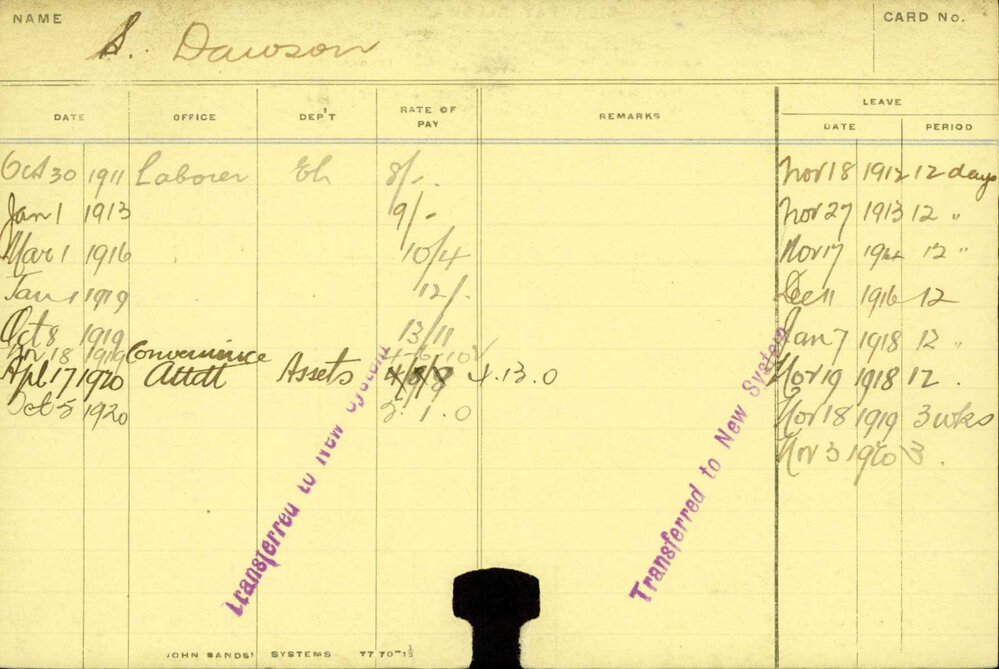 NAME S. Dawson CARD No.
DATE OFFICE DEP'T RATE OF PAY REMARKS LEAVE
DATE PERIOD
Oct 30 1911 Laborer Eh 8/-. Nov 18 1912 12 days
Jan 1 1913 9/- Nov 27 1913 12 "
Mar 1 1916 10/4 Nov 17 12 "
Jan 1 1919 12/- Dec 11 1916 12
Oct 8 1919 13/11 Jan 7 1918 12 "
Nov 18 1919 Convenience 4-6-10
Apl 17 1920 Attdt Assets 4.13.0 Nov 19 1918 12 .
Oct 5 1920 5.1.0 Nov 18 1919 3 wks
Nov 3 1920 3 .
Transferred to New System
Transferred to New System
JOHN SANDS' SYSTEMS